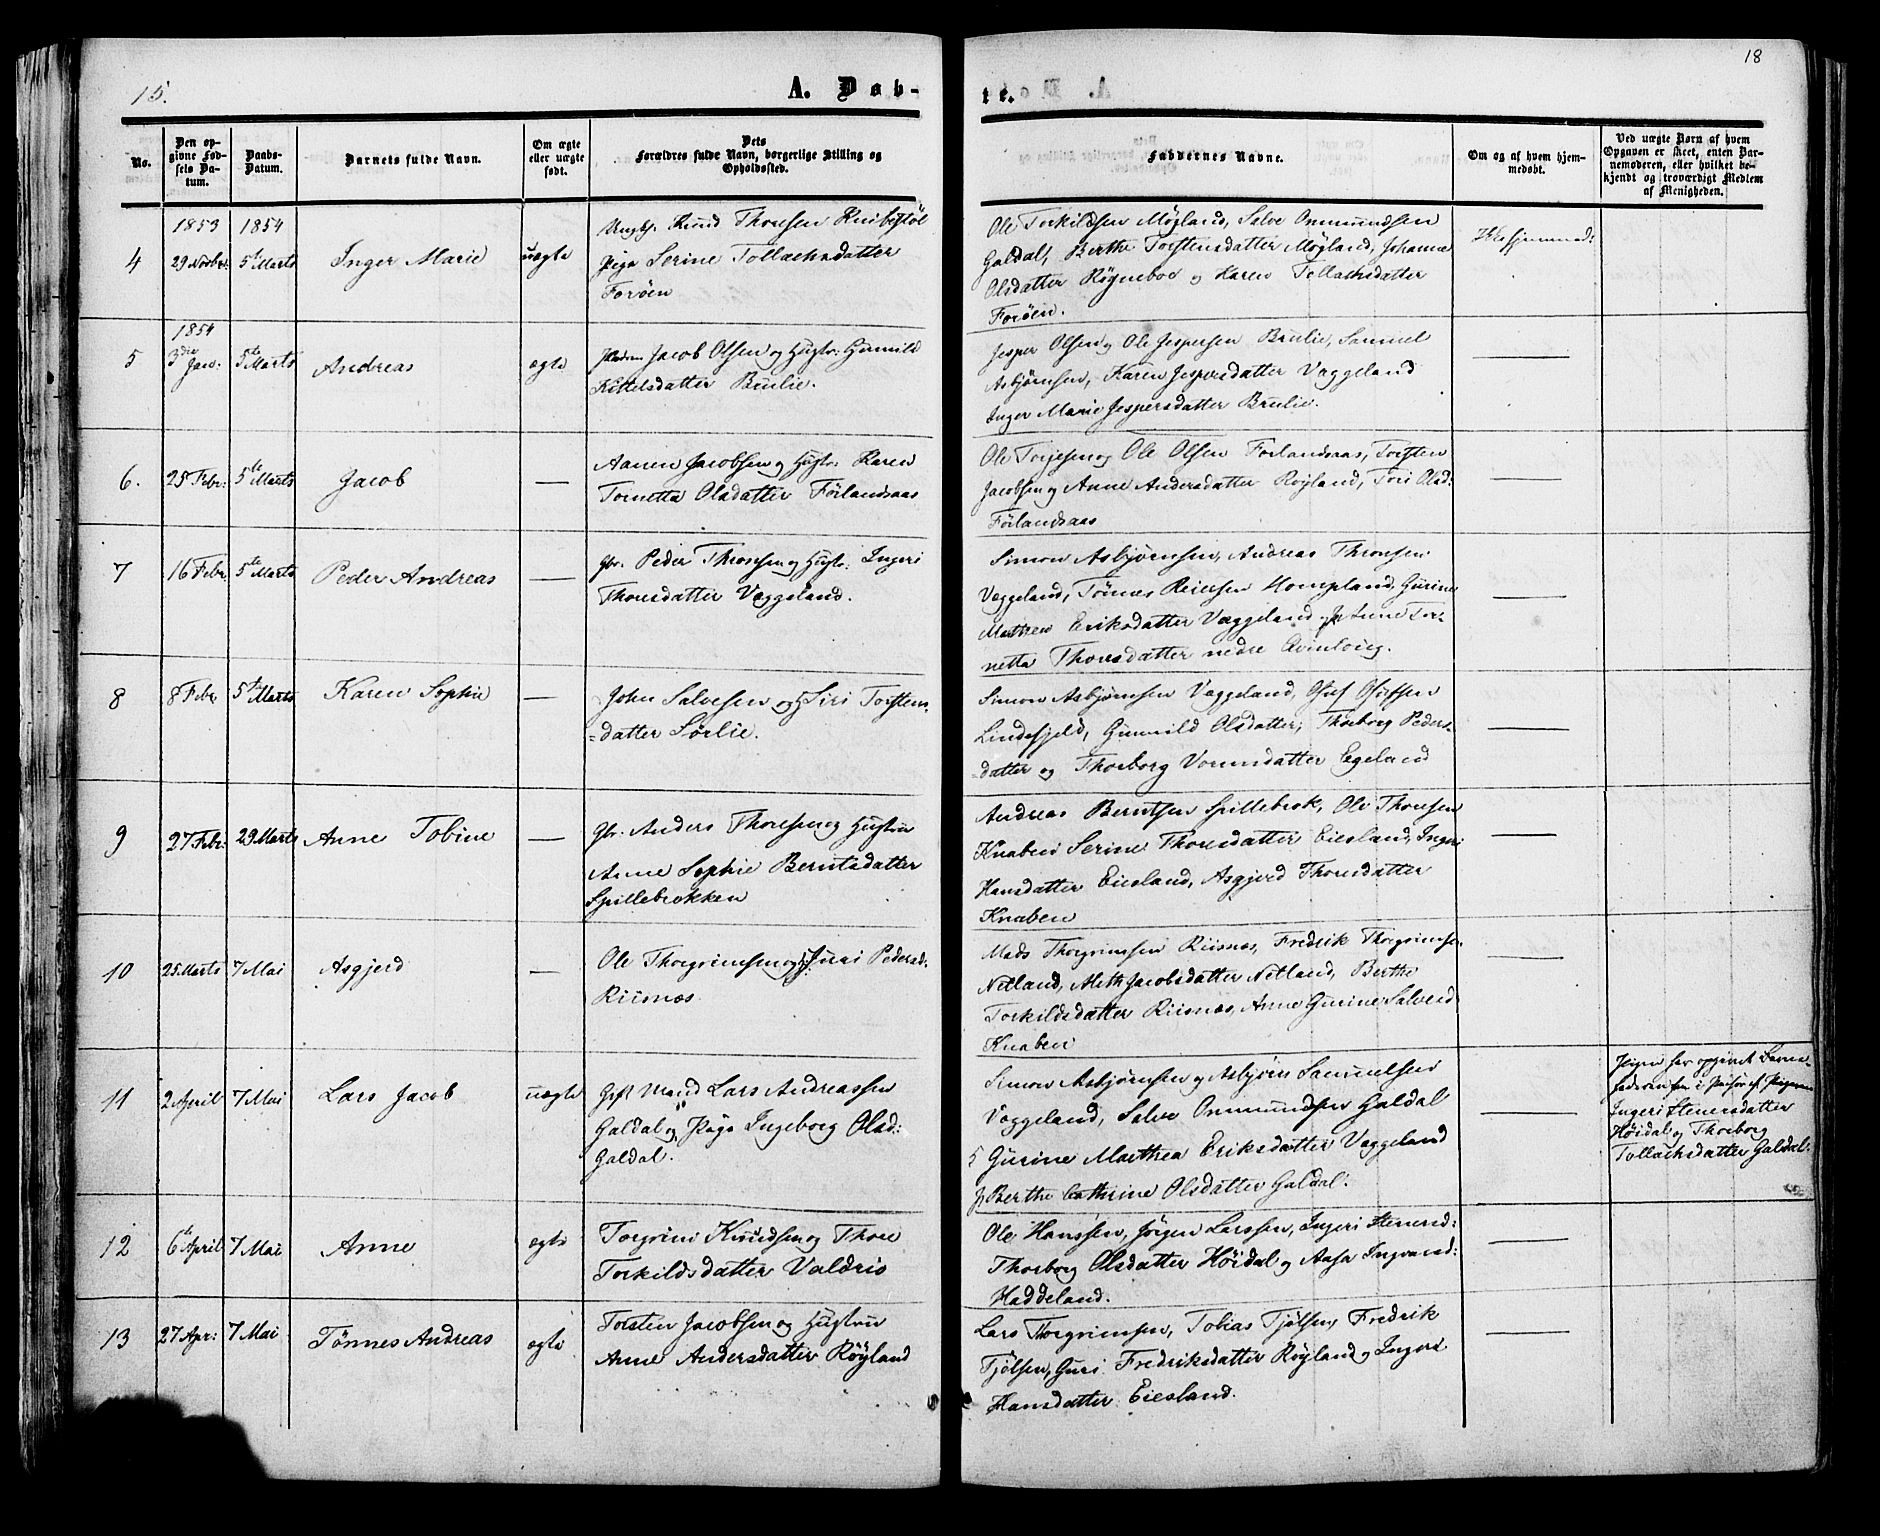 15.
A. Døb-
te.
18
No.
Den op-
givne Fød-
sels Da-
tum.
Daabs-
Datum.
Barnets fulde Navn.
Om ægte
eller uægte
født.
Dets
Forældres fulde Navn, borgerlige Stilling og
Opholdssted.
Faddernes Navne.
Om og af hvem hjem-
medøbt.
Ved uægte Børn af hvem
Opgaven er skeet, enten Bar-
nemoderen, eller hvilket be-
kjendt og troværdigt Medlem
af Menigheden.
1853 1854
4 29 Novbr: 5te Marts Inger Marie uægte
Ungk. Knud Thorsen
Pige Serine Tollachsdatter
Forøen
Ole Torkildsen Møgland, Salve Ommundsen
Galdal, Berthe Torstensdatter Møgland, Johanne
Olsdatter Røgneboe og Karen Tollachsdatter
Forøen.
1854
5 3die Jan: 5te Marts Andreas ægte
Jacob Olsen og Hustr: Gunvild
Kittelsdatter Brulie.
Jesper Olsen og Ole Jespersen Brulie, Samuel
Asbjørnsen, Karen Jespersdatter Vaggeland
Inger Marie Jespersdatter Brulie.
6. 25 Febr: 5te Marts Jacob —
Aanen Jacobsen og Hustr: Karen
Tornetta Olsdatter Førlandsaas
Ole Torjesen og Ole Olsen Førlandsaas, Torsten
Jacobsen og Anne Andersdatter Røyland, Tori Olsd:
Førlandsaas
7 16 Febr: 5te Marts Peder Andreas —
Gbr. Peder Thronsen og Hustr: Ingeri
Thorsdatter Vaggeland.
Simon Asbjørnsen, Andreas Thronsen
Vaggeland, Tønnes Reiersen Hompland, Gurine
Mathea Eriksdatter Vaggeland og P. Anne Tor-
netta Thorsdatter nedre Qvinlaug.
8 8 Febr 5te Marts Karen Sophie —
John Salvesen og H. Siri Torstens-
datter Sørlie.
Simon Asbjørnsen Vaggeland, Osuf Osufsen
Lindefjeld, Gunvild Olsdatter, Thorborg Peders-
datter og Thorborg Vormsdatter Egeland
9 27 Febr: 29 Marts Anne Tobine —
Gbr. Anders Thorsen og Hustru
Anne Sophie Berntsdatter
Spillebrokken
Andreas Berntsen Spillebrok, Ole Thorsen
Knaben Serine Thorsdatter Eiesland, Ingeri
Hansdatter Eiesland, Asgjerd Thorsdatter
Knaben
10 25 Marts 7 Mai Asgjerd —
Ole Thorgrimsen og H. Guri Pedersd:
Riisnes
Mads Thorgrimsen Riisnes, Fredrik Thorgrimsen
Netland, Aleth Jacobsdatter Netland, Berthe
Torkildsdatter Riisnes, Anne Gurine Salvesd
Knaben
11 2 April 7 Mai Lars Jacob uægte
Gift Mand Lars Andreassen
Galdal og Pige Ingeborg Olsd:
Galdal.
Simon Asbjørnsen og Asbjørn Samuelsen
Vaggeland, Salve Ommundsen Galdal
Gurine Mathea Eriksdatter Vaggeland
P. Berthe Cathrine Olsdatter Galdal.
Pigen har opgivet Barne-
faderen
Ingeri Stenersdatter
Høidal og Thorborg
Tollachsdatter Galdal.
12 6te April 7 Mai Anne ægte
Torgrim Knudsen og Thore
Torkildsdatter Valdrio
Ole Hanssen, Jørgen Larssen, Ingeri Stenersd:
Thorborg Olsdatter Høidal og Aasa Ingvarsd:
Haddeland.
13 27 Apr: 7 Mai Tønnes Andreas ægte
Torsten Jacobsen og Hustru
Anne Andersdatter Røyland
Lars Thorgrimsen, Tobias Tjølsen, Fredrik
Tjølsen, Guri Fredriksdatter Røyland og Ingeri
Hansdatter Eiesland.